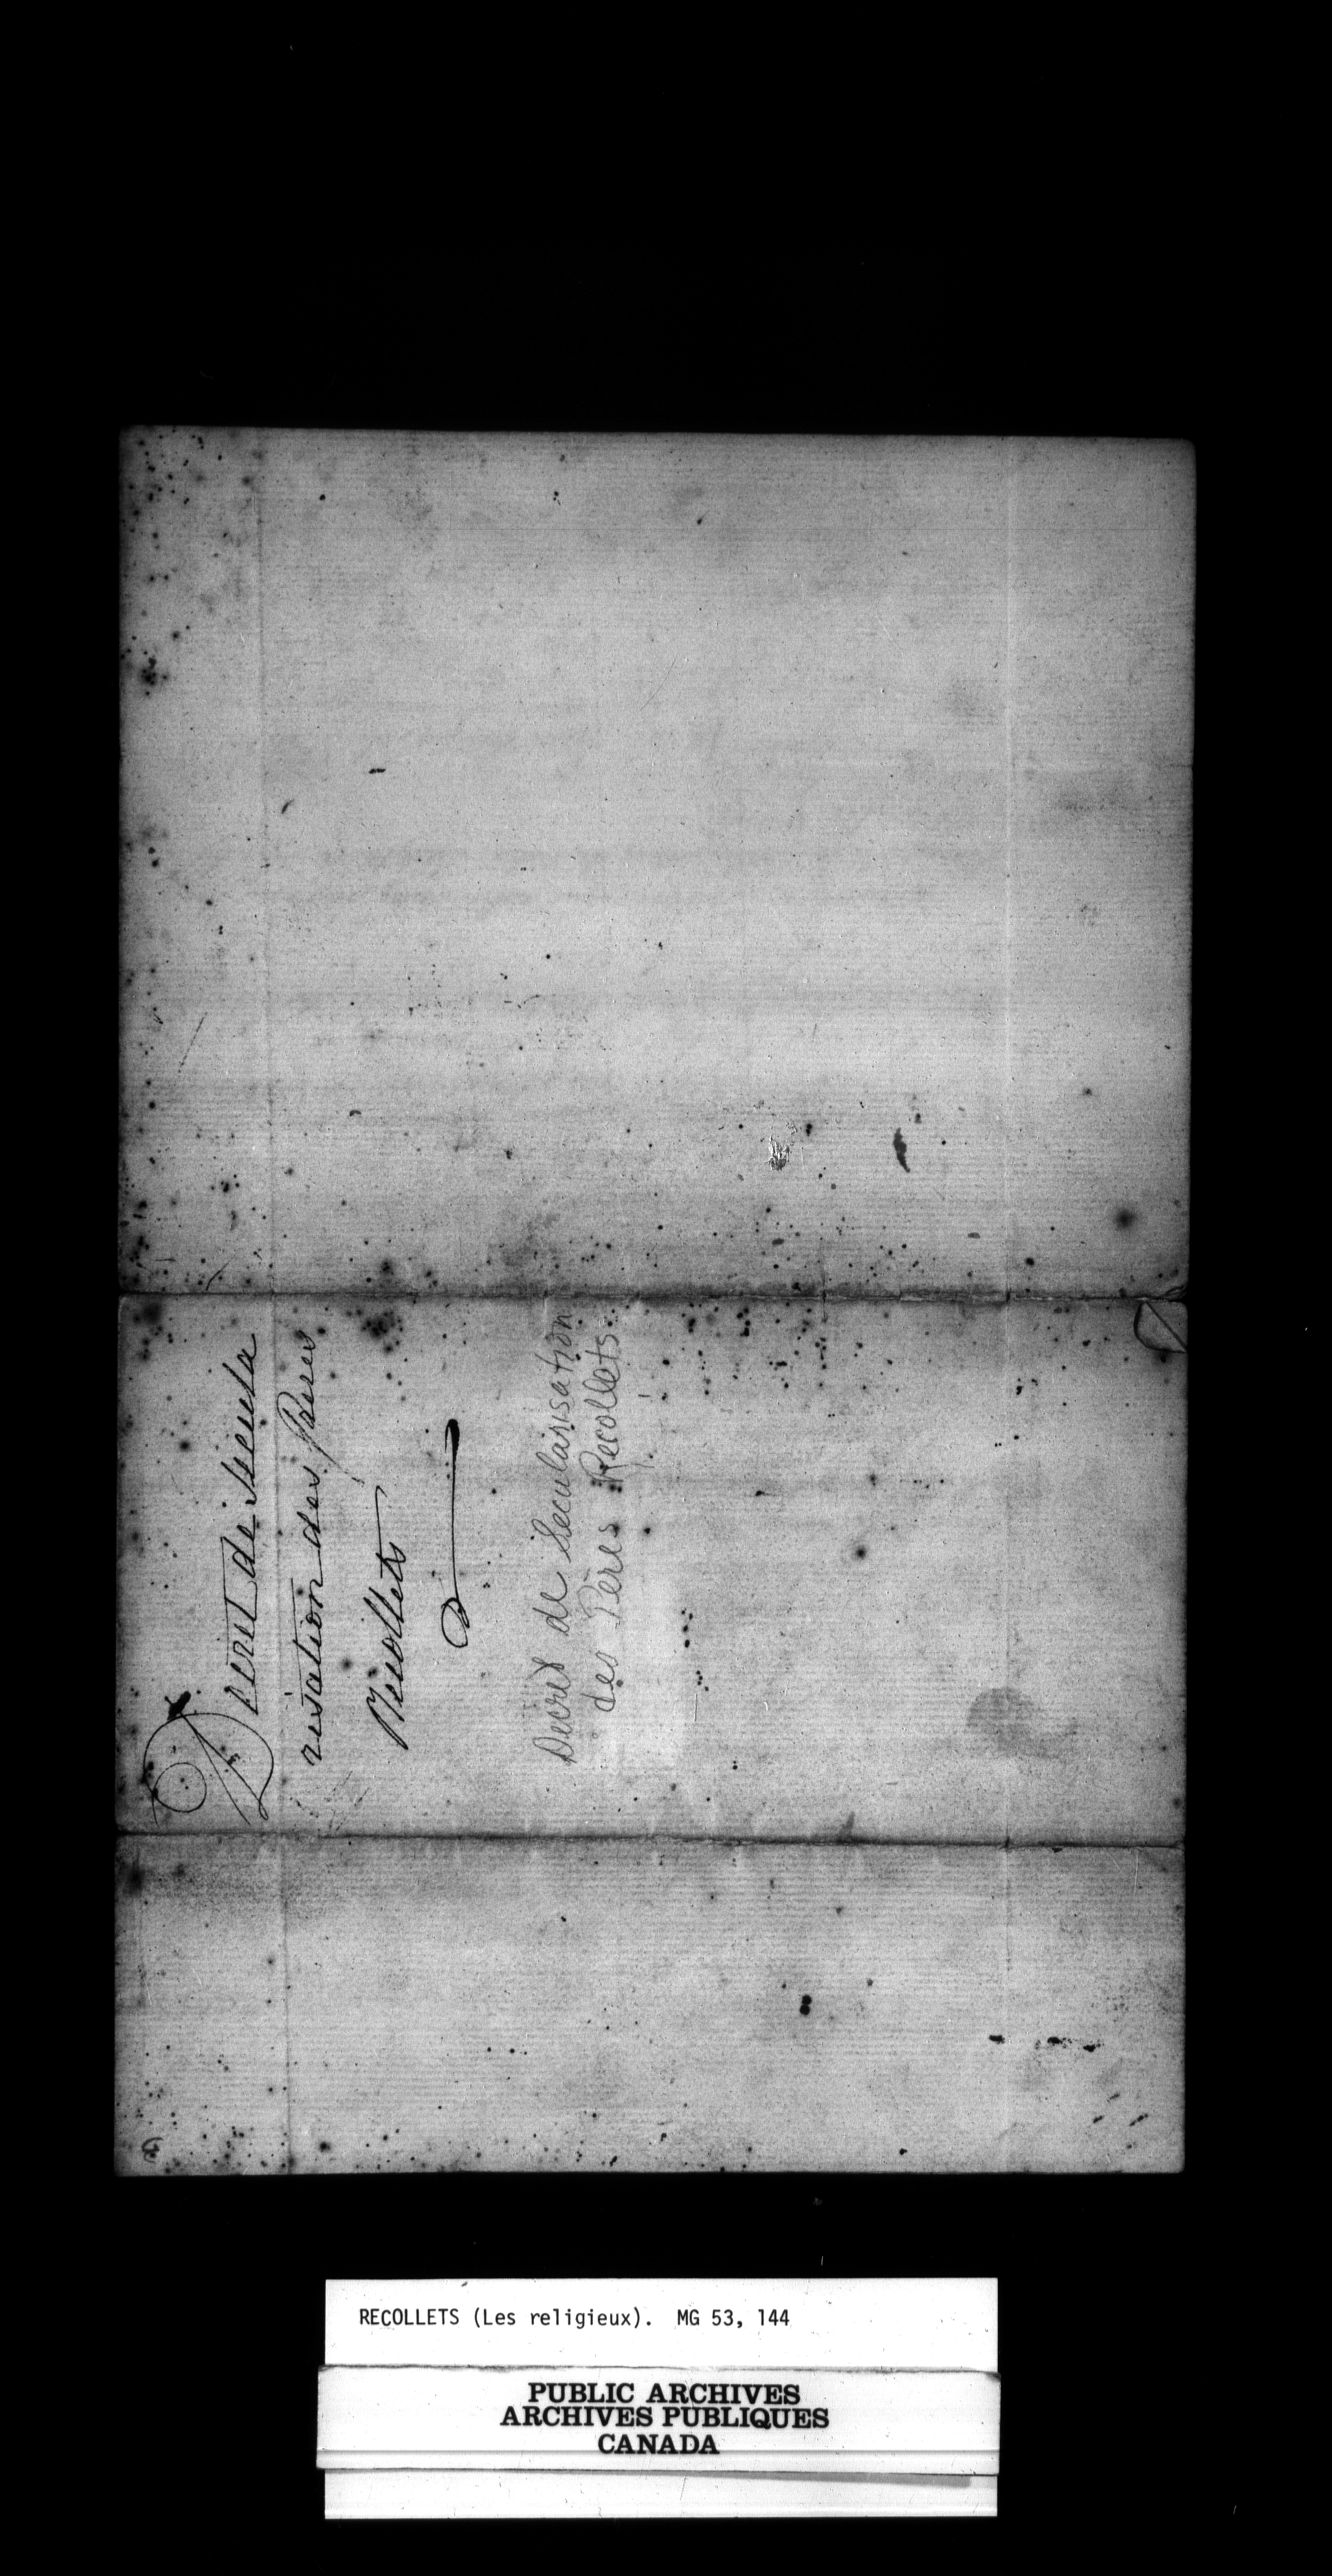 Decret de Secula
risation des Peres
Recollets
Decret de Secularisation
des Pères Recollets
RECOLLETS (Les religieux). MG 53, 144
PUBLIC ARCHIVES
ARCHIVES PUBLIQUES
CANADA